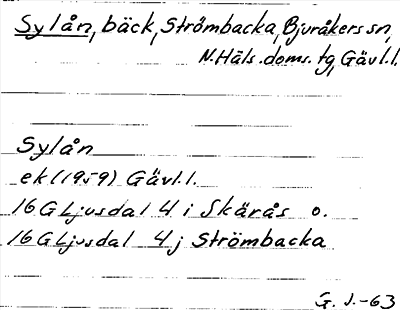 Sylån, bäck, Strömbacka, Bjuråkers sn,
N. Häls. doms. tg, Gävl. l.
Sylån
ek (1959) Gävl. l.
16 G Ljusdal 4 i Skärås o.
16 G Ljusdal 4 j Strömbacka
G. J. -63